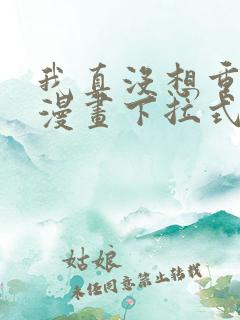 我真没想重
漫畫下拉式
姑娘
未经同意禁止转载